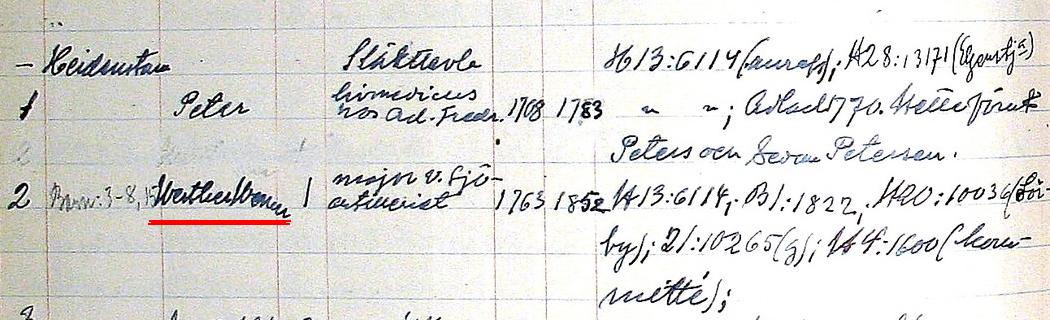 - Heidenstam Släkttavla H13:6114 (anrapp); H28:13171 (Egenstja)
1 Peter livmedicus
hos Ad. Fredr. 1708 1783 " " ; Adlad 1770. Hette förut
Peters och sedan Petersen.
2 Barn: 3-8, 15 Werner 1 major v. sjö-
artilleriet 1763 1852 H13:6114; B1:1822, H20:10036 (Lör-
by); 21:10265 (g); H4:1600 (kom-
mitté);